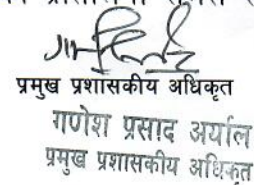 प्रमुख प्रशासकीय अधिकृत
गणेश प्रसाद अर्याल
प्रमुख प्रशासकीय अधिकृत